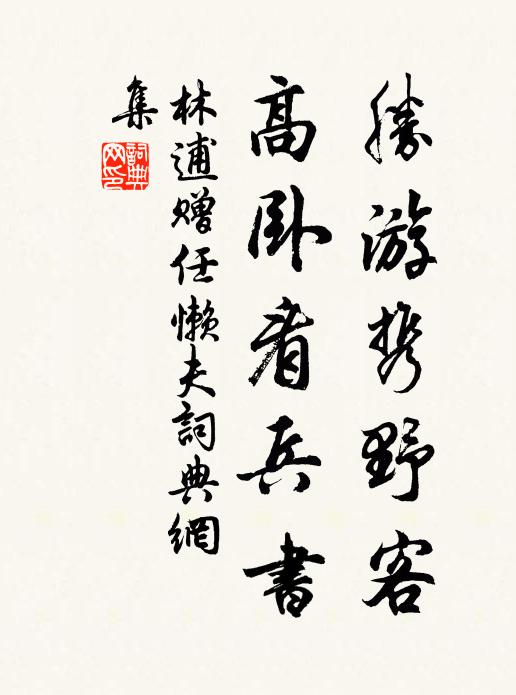 勝游携野客
高卧看兵書
林逋贈任懶夫詞典網
集
詞典
网印